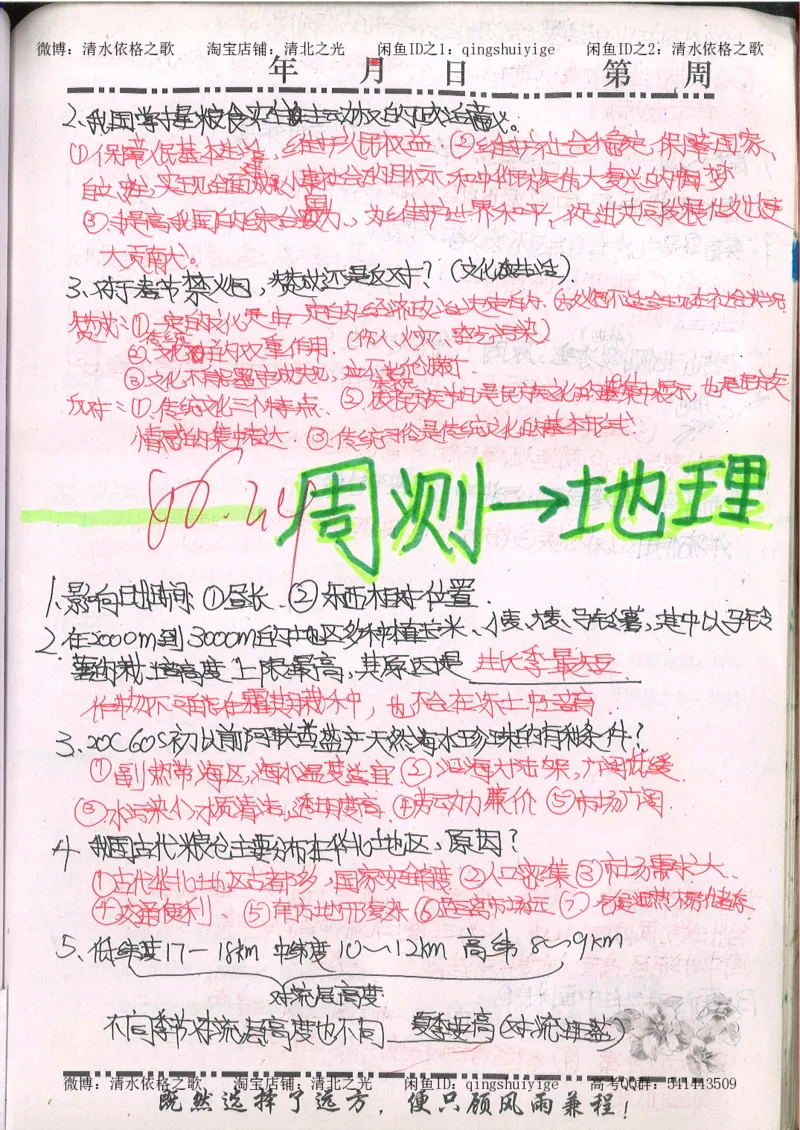 微博：清水依格之歌 淘宝店铺：清北之光 闲鱼ID之1：qingshuiyige 闲鱼ID之2：清水依格之歌
年 月 日 第 周
2.我国掌握粮食安全主动权的政治意义。
①保障人民基本生活，维护人民权益 ②维护社会稳定，保障国家
自立，实现全面建成小康社会的目标和中华民族伟大复兴的中国梦
③提高我国的综合国力，为维护世界和平，促进共同发展做出更
大贡献。
3.对于春节禁烟，赞成还是反对？（文化生活）
赞成：①一定的文化是由一定的经济政治决定的
②文化的反作用。（伤人，火灾，空气污染）
反对：①.传统文化三个特点. ②民族节日是民族文化的集中展示，也是民族
情感的集中表达 ③.传统习俗是传统文化的基本形式
86.24
周测→地理
1.影响日出时间 ①昼长 ②东西相对位置
2.在2000m到3000m的山地区多种植玉米、小麦、大麦、马铃薯，其中以马铃
薯的栽培高度上限最高，其原因是 生长季最短
作物不可能在霜期栽种，也不会在冻土中生
3.20C60S初以前阿联酋盛产天然海水珍珠的有利条件？
①副热带海区，海水温度适宜 ②沿海大陆架，广阔低缓
③水污染小水质清洁，透明度高 ④劳动力廉价 ⑤市场广阔
4.我国古代粮仓主要分布在华北地区，原因？
①古代华北地区古都多，国家安全角度 ②人口密集 ③市场需求大、
④交通便利、⑤南方地形复杂 ⑥距离市场远 ⑦湿热不易储存.
5.低纬度17—18km 中纬度10～12km 高纬8～9km
对流层高度
不同季节对流层高度也不同 夏季更高（对流旺盛）
微博：清水依格之歌 淘宝店铺：清北之光 闲鱼ID：qingshuiyige 高考QQ群：541443509
既然选择了远方，便只顾风雨兼程！